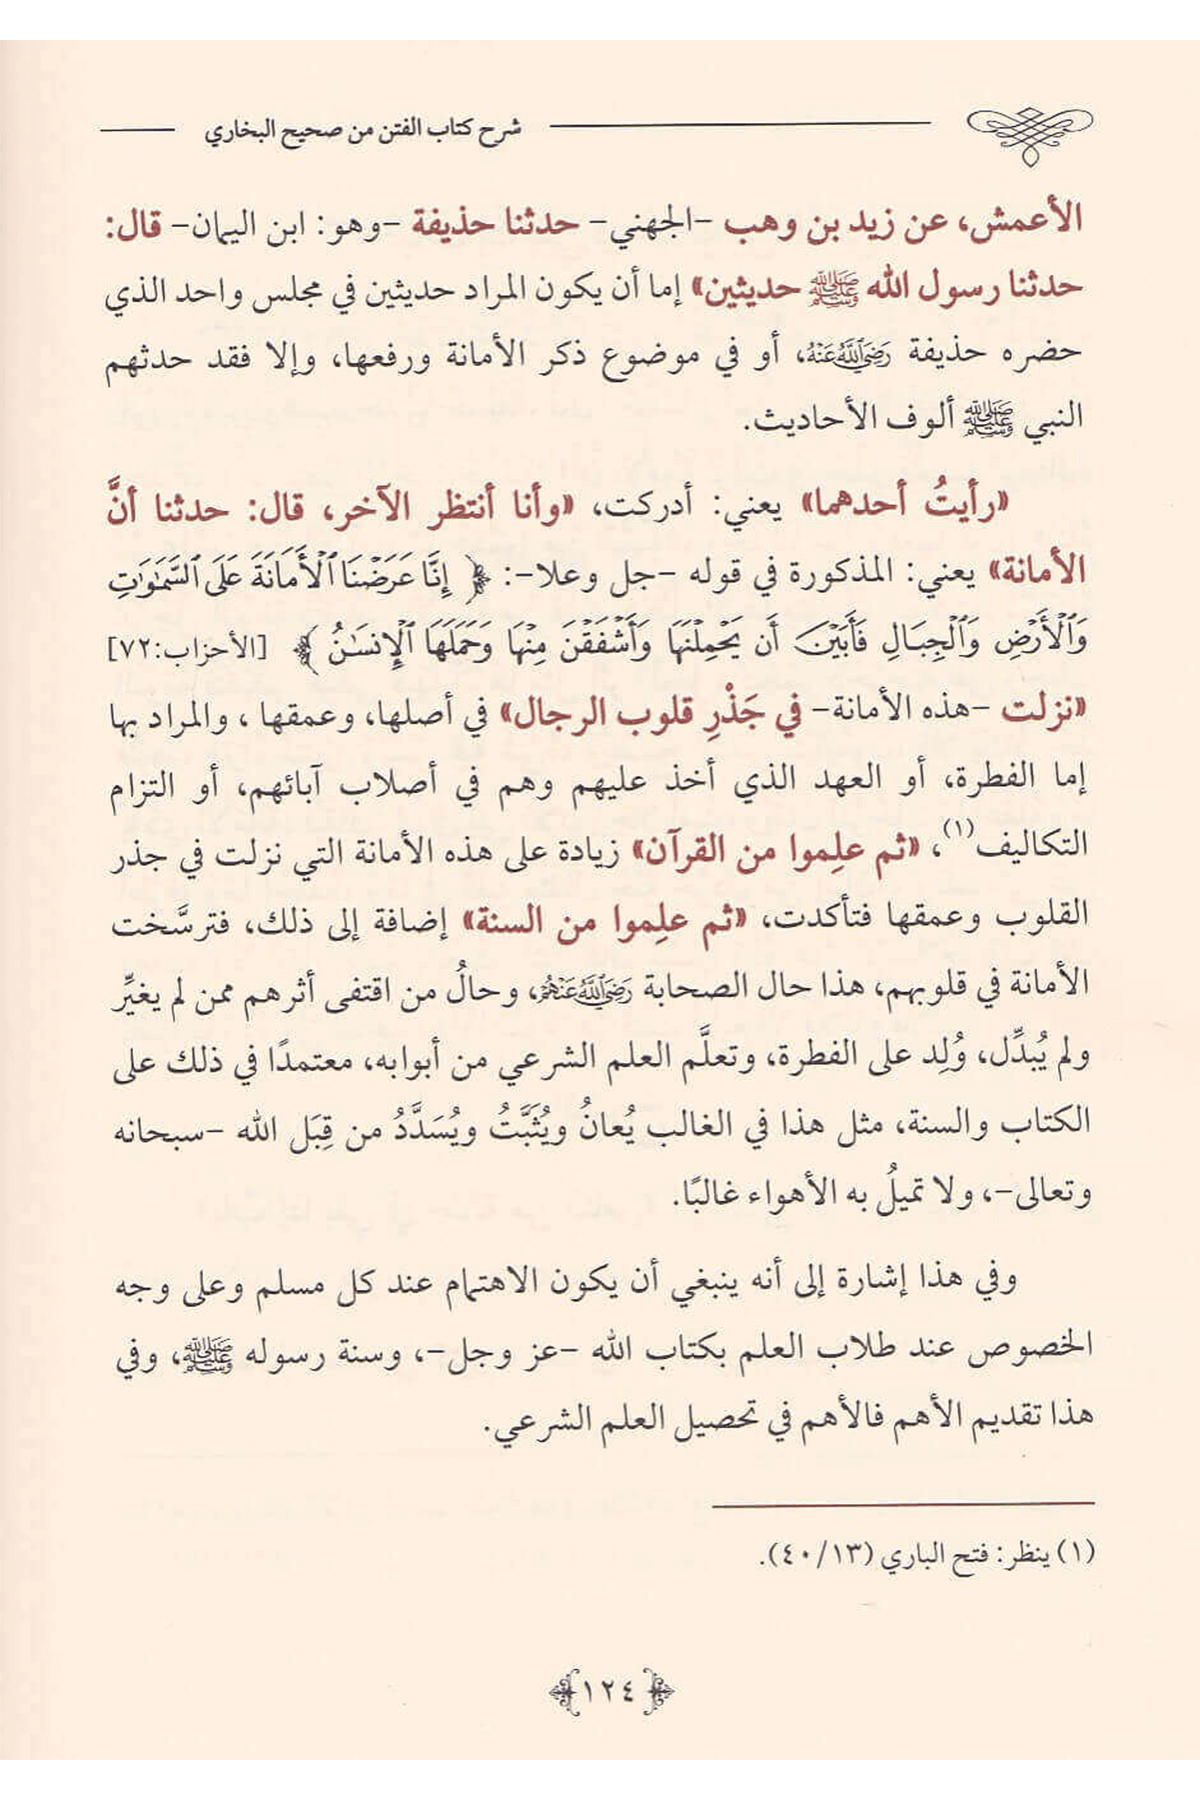 شرح كتاب الفتن من صحيح البخاري
الأعمش، عن زيد بن وهب –الجهني– حدثنا حذيفة –وهو: ابن اليمان– قال:
حدثنا رسول الله ﷺ حديثين» إما أن يكون المراد حديثين في مجلس واحد الذي
حضره حذيفة رَضِيَ اللَّهُ عَنْهُ، أو في موضوع ذكر الأمانة ورفعها، وإلا فقد حدثهم
النبي ﷺ ألوف الأحاديث.
«رأيتُ أحدهما» يعني: أدركت، «وأنا أنتظر الآخر، قال: حدثنا أنَّ
الأمانة» يعني: المذكورة في قوله –جل وعلا–: ﴿ إِنَّا عَرَضْنَا ٱلْأَمَانَةَ عَلَى ٱلسَّمَٰوَٰتِ
وَٱلْأَرْضِ وَٱلْجِبَالِ فَأَبَيْنَ أَن يَحْمِلْنَهَا وَأَشْفَقْنَ مِنْهَا وَحَمَلَهَا ٱلْإِنسَٰنُ ﴾ [الأحزاب:٧٢]
«نزلت –هذه الأمانة– في جَذْرِ قلوب الرجال» في أصلها، وعمقها ، والمراد بها
إما الفطرة، أو العهد الذي أخذ عليهم وهم في أصلاب آبائهم، أو التزام
التكاليف(١)، «ثم علِموا من القرآن» زيادة على هذه الأمانة التي نزلت في جذر
القلوب وعمقها فتأكدت، «ثم علِموا من السنة» إضافة إلى ذلك، فترسَّخت
الأمانة في قلوبهم، هذا حال الصحابة رَضِيَ اللَّهُ عَنْهُمْ، وحالُ من اقتفى أثرهم ممن لم يغيِّر
ولم يُبدِّل، وُلِد على الفطرة، وتعلَّم العلم الشرعي من أبوابه، معتمدًا في ذلك على
الكتاب والسنة، مثل هذا في الغالب يُعانُ ويُثَبَّتُ ويُسَدَّدُ من قِبَل الله –سبحانه
وتعالى–، ولا تميلُ به الأهواء غالبًا.
وفي هذا إشارة إلى أنه ينبغي أن يكون الاهتمام عند كل مسلم وعلى وجه
الخصوص عند طلاب العلم بكتاب الله –عز وجل–، وسنة رسوله ﷺ، وفي
هذا تقديم الأهم فالأهم في تحصيل العلم الشرعي.
(١) ينظر: فتح الباري (١٣/ ٤٠).
١٢٤